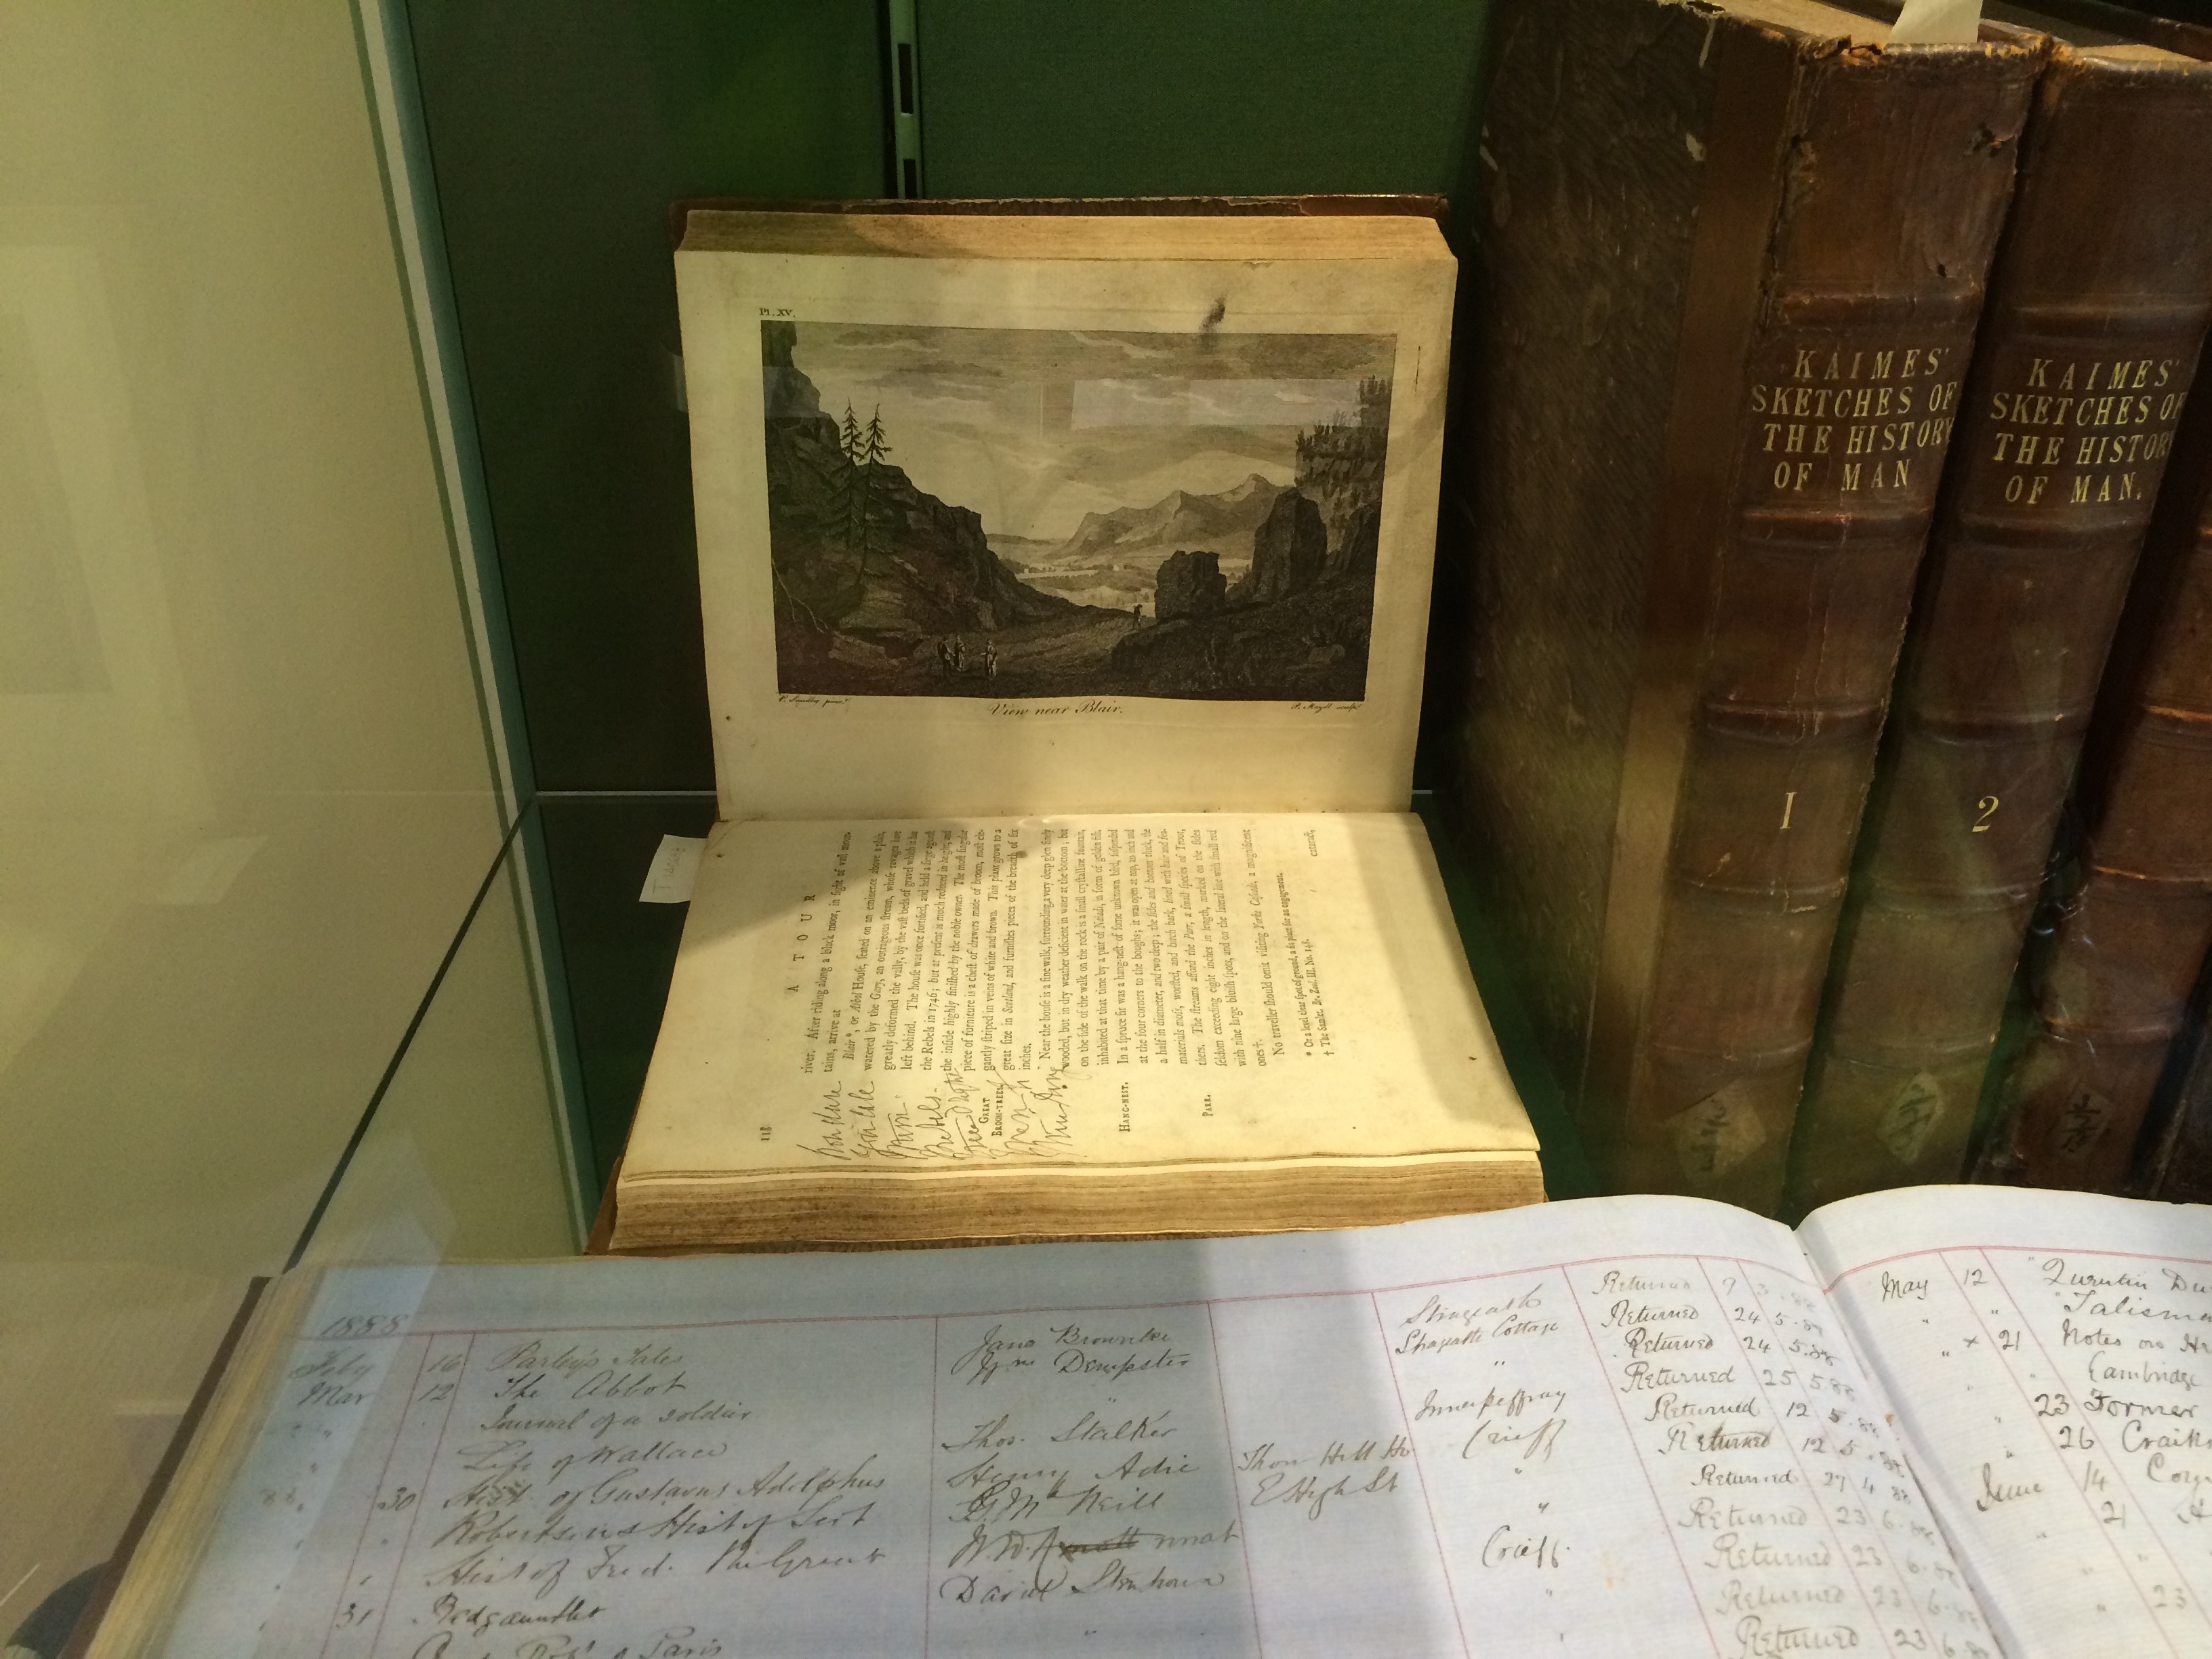 Pl. XV.
View near Blair.
KAIMES'
SKETCHES OF
THE HISTORY
OF MAN
1
KAIMES'
SKETCHES OF
THE HISTORY
OF MAN.
2
118
A TOUR
river. After riding along a black moor, in sight of vast moun-
tains, arrive at
Blair *, or Athol House, seated on an eminence above a plain,
watered by the Gary, an outrageous stream, whose ravages have
greatly deformed the vally, by the vast beds of gravel which it has
left behind. The house was once fortified, and held a siege against
the Rebels in 1746; but at present is much reduced in height, and
the inside highly finished by the noble owner. The most singular
piece of furniture is a chest of drawers made of broom, most ele-
gantly striped in veins of white and brown. This plant grows to a
great size in Scotland, and furnishes pieces of the breadth of six
inches.
GREAT
BROOM-TREES
Near the house is a fine walk, surrounding a very deep glen finely
wooded, but in dry weather deficient in water at the bottom; but
on the side of the walk on the rock is a small crystalline fountain,
inhabited at that time by a pair of Naiads, in form of golden fish.
HANG-NEST.
In a spruce fir was a hang-nest of some unknown bird, suspended
at the four corners to the boughs; it was open at top, an inch and
a half in diameter, and two deep; the sides and bottom thick, the
materials moss, worsted, and birch bark, lined with hair and fea-
thers.
PARR.
The streams afford the Parr, a small species of Trout,
seldom exceeding eight inches in length, marked on the sides
with nine large bluish spots, and on the lateral line with small red
ones †.
No traveller should omit visiting Yorke Cascade, a magnificent
cataract,
* Or a level clear spot of ground, a fit place for an engagement.
† The Samlet. Br. Zool. III. No. 148.
1888
Feby 16 Parley's Tales Jane Brownlee Strageath Returned 9 3.88
Mar 12 The Abbot Wm Dempster Strageath Cottage Returned 24 5.88
" Journal of a soldier " " Returned 24 5.88
" Life of Wallace Thos. Stalker Innerpeffray Returned 25 5.88
30 Hist. of Gustavus Adolphus Henry Adie Thorn Hill Ho Crieff Returned 12 5.88
" Robertson's Hist of Scot G. McNeill E High St " Returned 12 5.88
" Hist of Fred. the Great " Returned 27 4 88
31 Redgauntlet David Crieff. Returned 23 6.88
" Returned 23 6.88
Returned 23 6.88
Returned 23 6.88
May 12 Quentin
" Talisman
" × 21 Notes on
Cambridge
" 23 Former
" 26 Craik
June 14
21
" 23